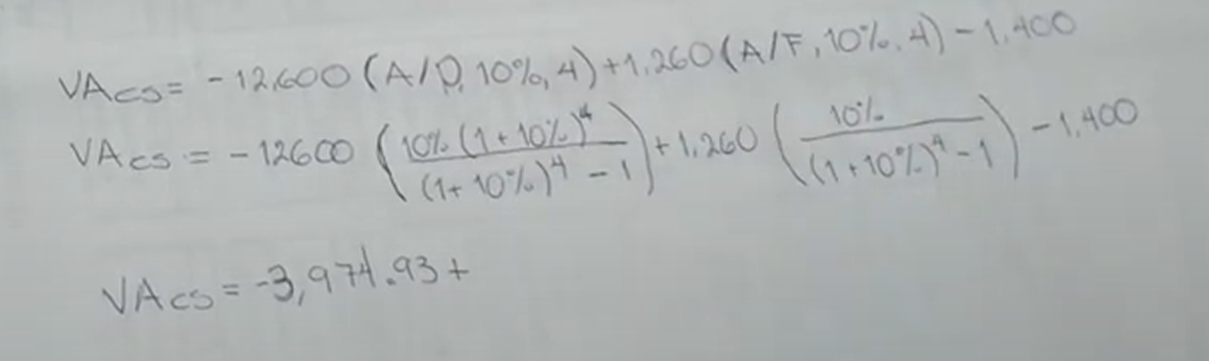 VAcs = -12,600 (A/P, 10%, 4) + 1,260 (A/F, 10%, 4) - 1,400
VAcs = -12600 ( 10% (1+10%)^4 / (1+10%)^4 - 1 ) + 1,260 ( 10% / (1+10%)^4 - 1 ) - 1,400
VAcs = -3,974.93 +